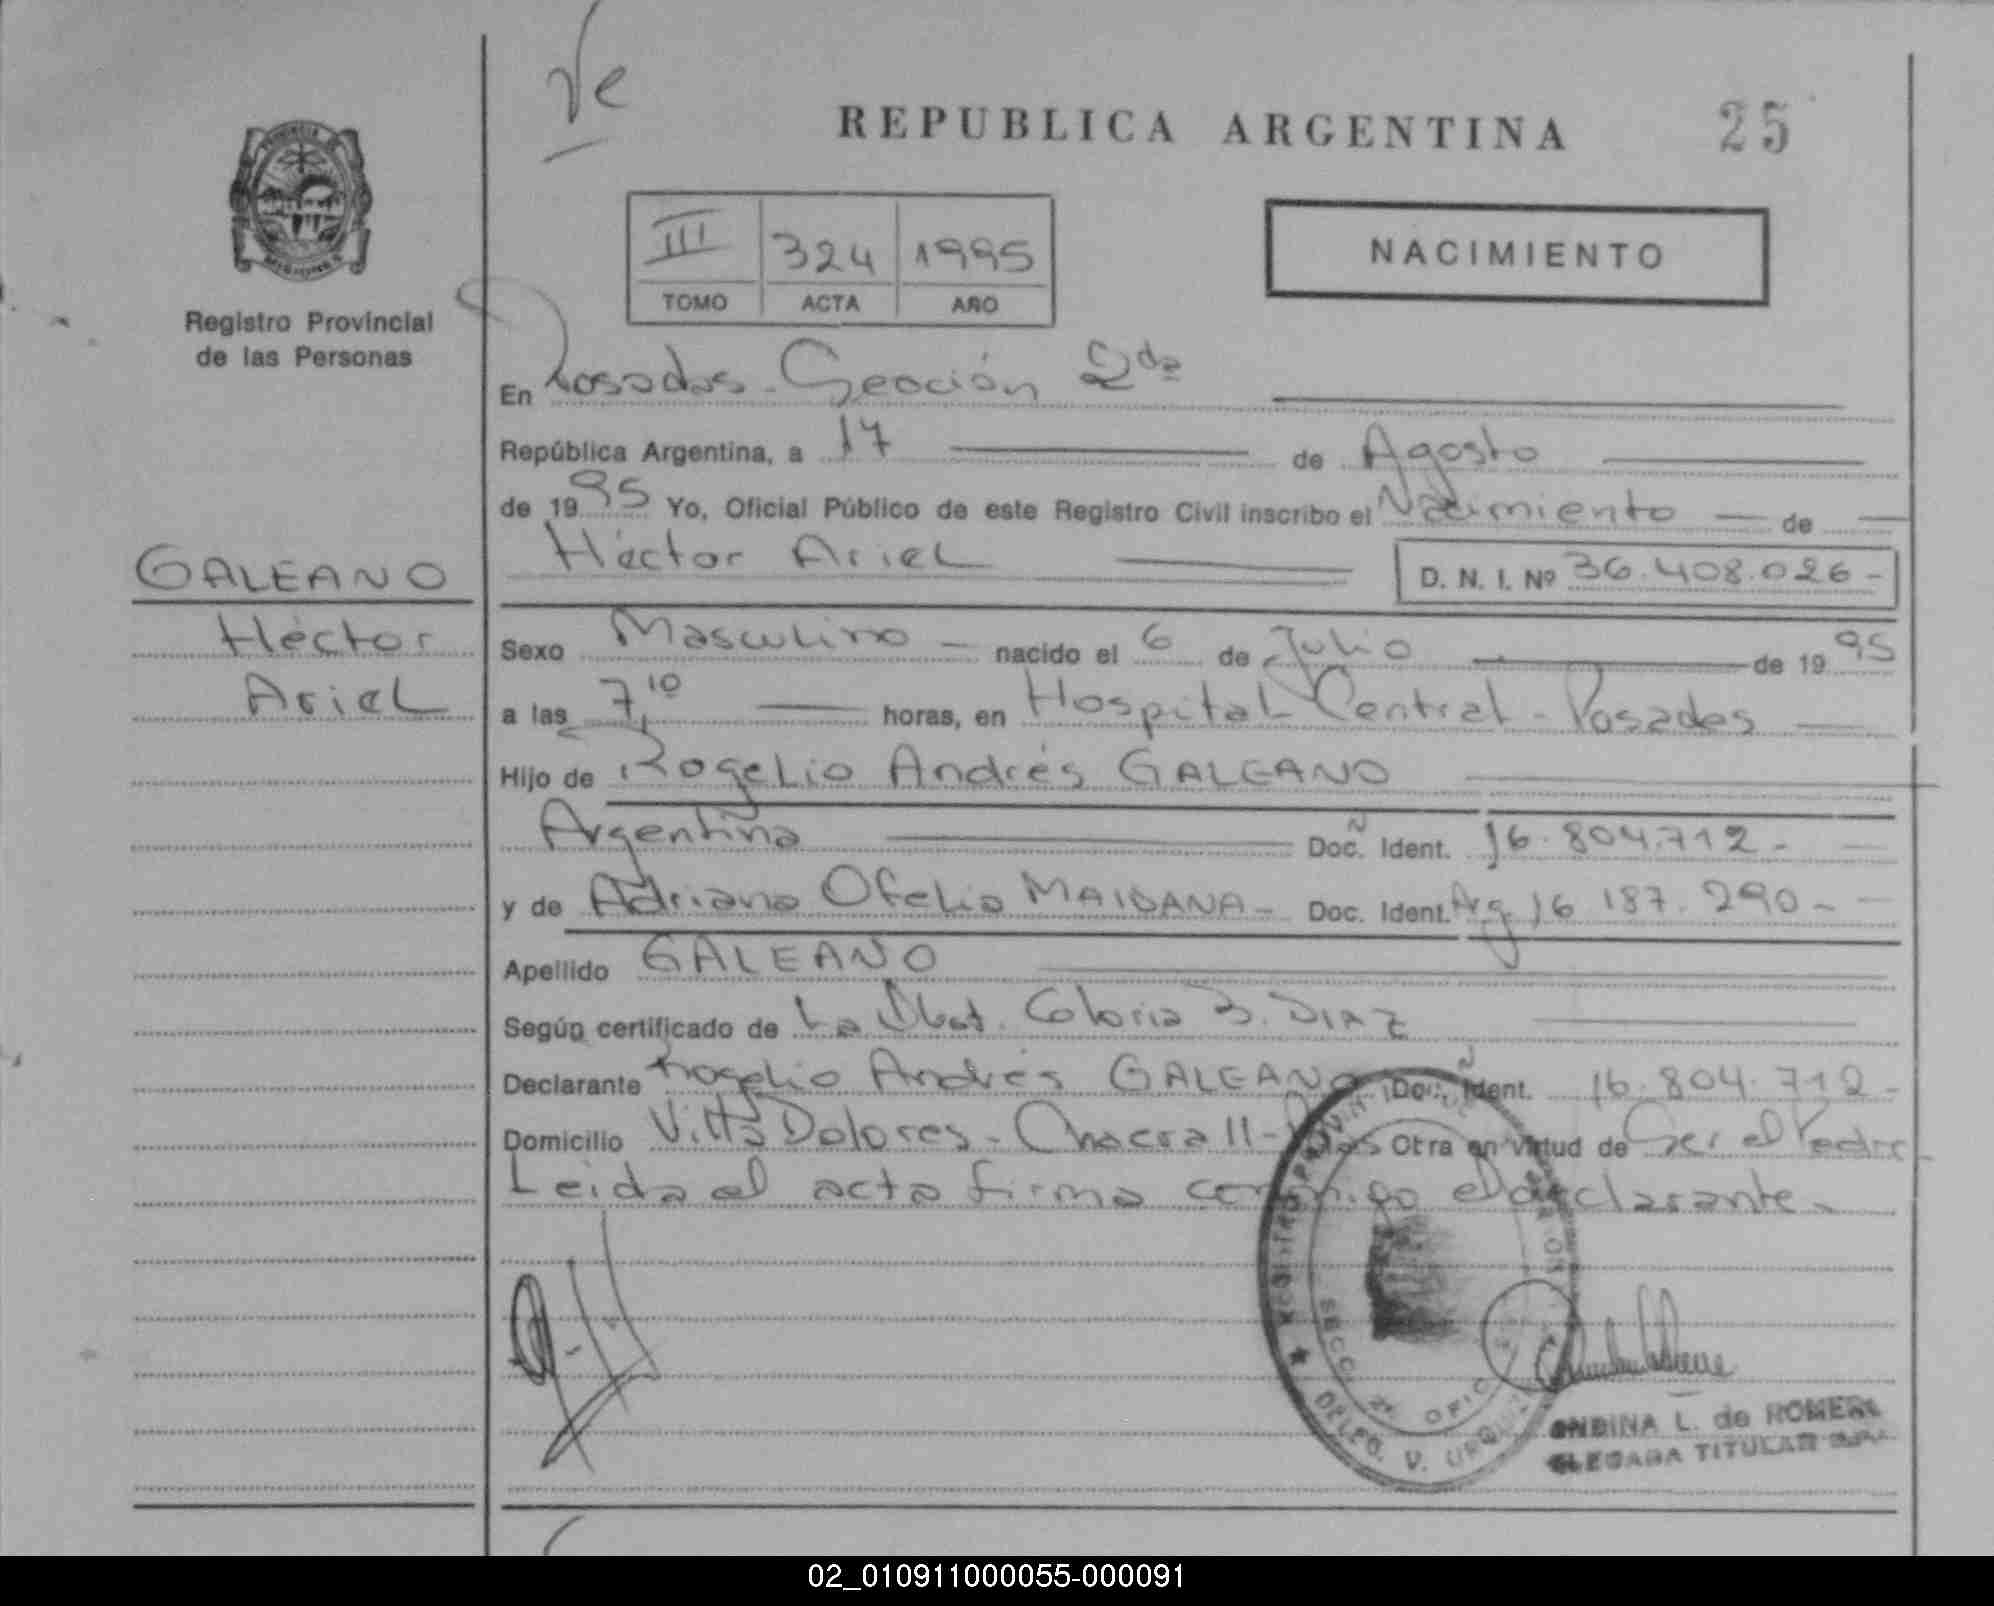 Ve
REPUBLICA ARGENTINA
25
PROVINCIA
MISIONES
Registro Provincial
de las Personas
III 324 1995
TOMO ACTA AÑO
NACIMIENTO
En Posadas - Sección 2da
República Argentina, a 17 de Agosto
de 1995 Yo, Oficial Público de este Registro Civil inscribo el Nacimiento de
Héctor Ariel D. N. I. Nº 36.408.026-
GALEANO
Héctor
Ariel
Sexo Masculino nacido el 6 de Julio de 1995
a las 7,10 horas, en Hospital Central - Posadas
Hijo de Rogelio Andrés GALEANO
Argentina Doc. Ident. 16.804.712-
y de Adriana Ofelia MAIDANA - Doc. Ident. Arg. 16 187.290-
Apellido GALEANO
Según certificado de La Obst. Gloria B. DIAZ
Declarante Rogelio Andrés GALEANO Doc. Ident. 16.804.712-
Domicilio Villa Dolores - Chacra 11- Otra en virtud de Ser el Padre
Leida el acta firma conmigo el declarante -
REGISTRO PROVINCIAL DE
SECC. 2ª OFIC
DELEG. V. URQUIZA
L. de ROMERO
TITULAR
02_010911000055-000091